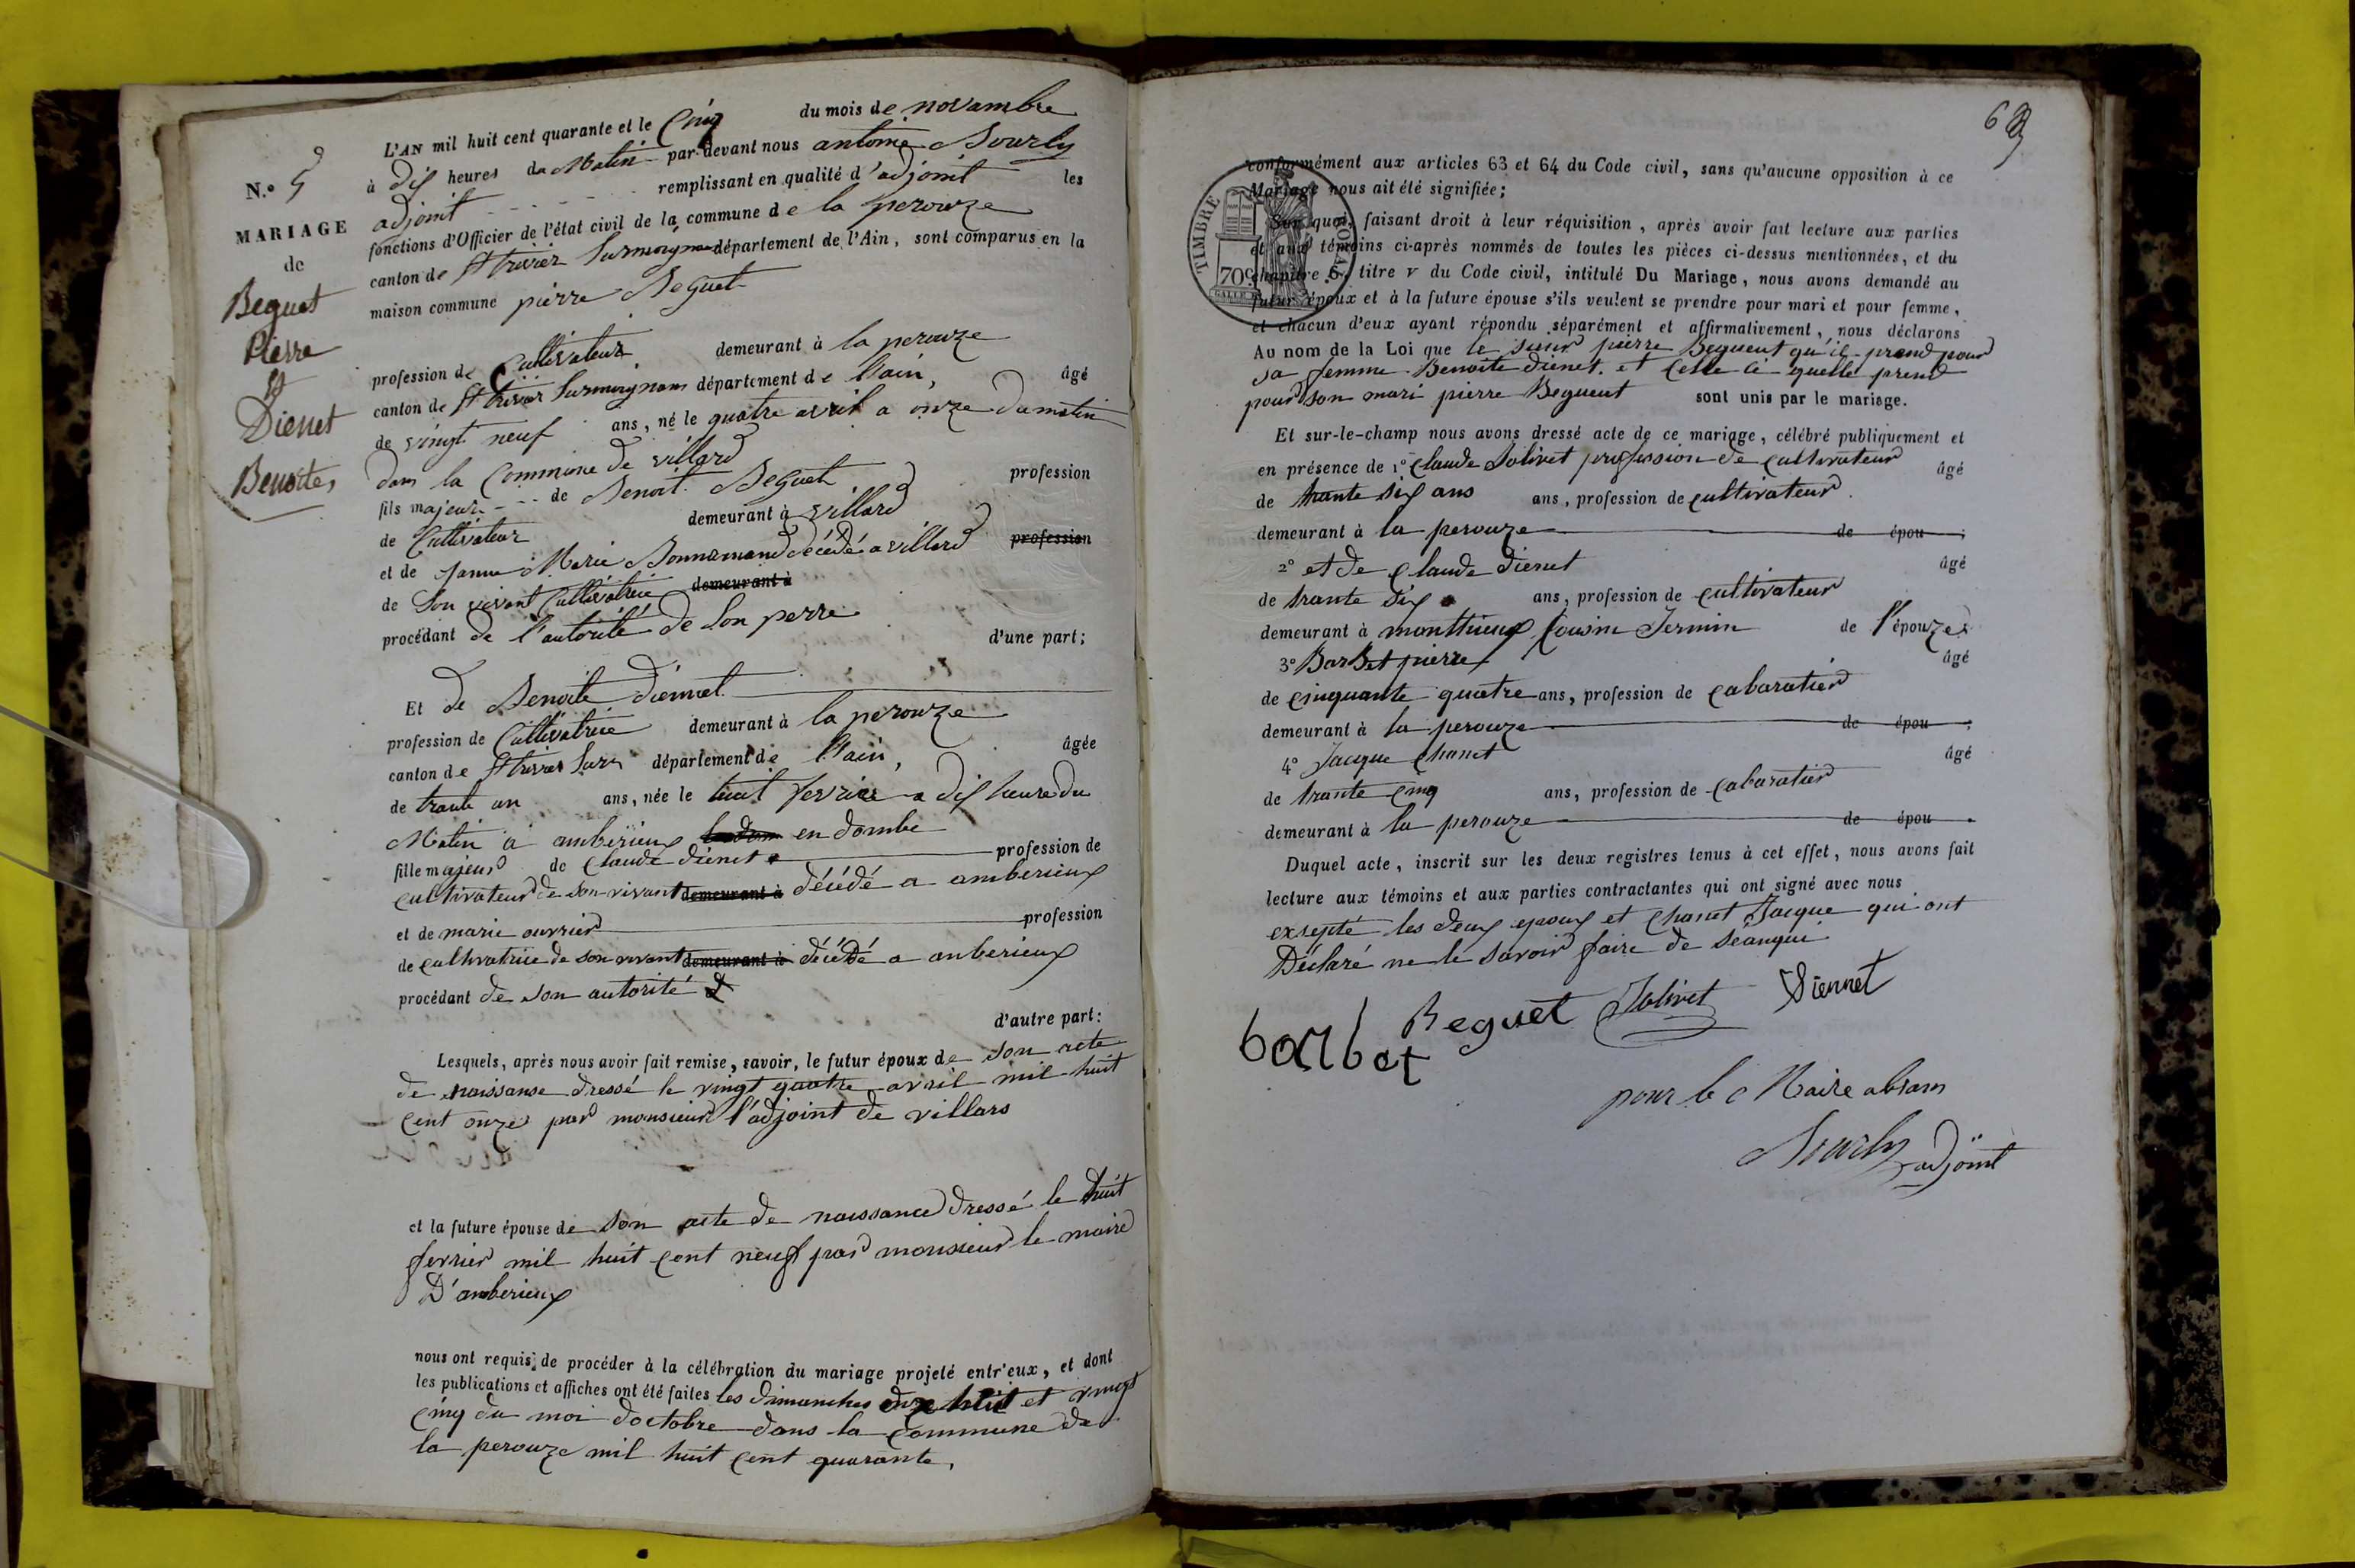 N.° 5
MARIAGE
de
Beguet
Pierre
et
Dienet
Benoite,
L'AN mil huit cent quarante et le Cinq du mois de novambre
à dix heures du Matin par-devant nous antoine Sourly
adjoint remplissant en qualité d'adjoint les
fonctions d'Officier de l'état civil de la commune de la perouze
canton de St trivier Surmoignans département de l'Ain, sont comparus en la
maison commune pierre Beguet
profession de Cultivateur demeurant à la perouze
canton de St trivier Surmoignans département de l'ain, âgé
de vingt neuf ans, né le quatre avril a onze du matin
dans la Commune de villard
fils majeur de Benoit Beguet profession
de Cultivateur demeurant à villard
et de janne Marie Bonnamand décédé a villard profession
de Son vivant Cultivatrice demeurant à
procédant de l'autorité de Son perre
d'une part;
Et de Benoite diennet
profession de Cultivatrice demeurant à la perouze
canton de St trivier Sur département de l'ain, âgée
de trante un ans, née le huit fevrier a dix heure du
Matin a amberieux en dombe
fille majeur de Claude dienet profession de
cultivateur de son vivant demeurant à décédé a amberieux
et de marie ouvrier profession
de cultivatrice de son vivant demeurant à décédé a anberieux
procédant de son autorité
d'autre part:
Lesquels, après nous avoir fait remise, savoir, le futur époux de son acte
de naissanse dressé le vingt quatre avril mil huit
cent onze par monsieur l'adjoint de villars
et la future épouse de son acte de naissance dressé le huit
fevrier mil huit cent neuf par monsieur le maire
D'amberieux
nous ont requis de procéder à la célébration du mariage projeté entr'eux, et dont
les publications et affiches ont été faites les dimanches dix huit et vingt
cinq du moi doctobre dans la commune de
la perouze mil huit cent quarante,
conformément aux articles 63 et 64 du Code civil, sans qu'aucune opposition à ce
Mariage nous ait été signifiée;
TIMBRE ROYAL
70 c
Sur quoi, faisant droit à leur réquisition, après avoir fait lecture aux parties
et aux témoins ci-après nommés de toutes les pièces ci-dessus mentionnées, et du
chapitre 6, titre v du Code civil, intitulé Du Mariage, nous avons demandé au
futur époux et à la future épouse s'ils veulent se prendre pour mari et pour femme,
et chacun d'eux ayant répondu séparément et affirmativement, nous déclarons
Au nom de la Loi que le sieur pierre Begueut qu'il prend pour
sa femme Benoite Dienet. et celle ci quelle prend
pour son mari pierre Begueut sont unis par le mariage.
Et sur-le-champ nous avons dressé acte de ce mariage, célébré publiquement et
en présence de 1° Claude Jolivet profession de cultivateur âgé
de trante six ans ans, profession de cultivateur
demeurant à la perouze de épou ;
2° et de Claude dienet âgé
de trante six ans, profession de cultivateur
demeurant à monthieux cousin Jermin de l'épouze;
3° Barbet pierre âgé
de cinquante quatre ans, profession de cabaratier
demeurant à la perouze de épou ;
4° Jacque Chanet âgé
de trante cinq ans, profession de Cabaratier
demeurant à la perouze de épou .
Duquel acte, inscrit sur les deux registres tenus à cet effet, nous avons fait
lecture aux témoins et aux parties contractantes qui ont signé avec nous
exsepté les deux epoux et Chanet Jacque qui ont
Déclaré ne le savoir faire de séanqui
barbet Beguet Jolivet Diennet
pour le Maire absans
Sourly adjoint